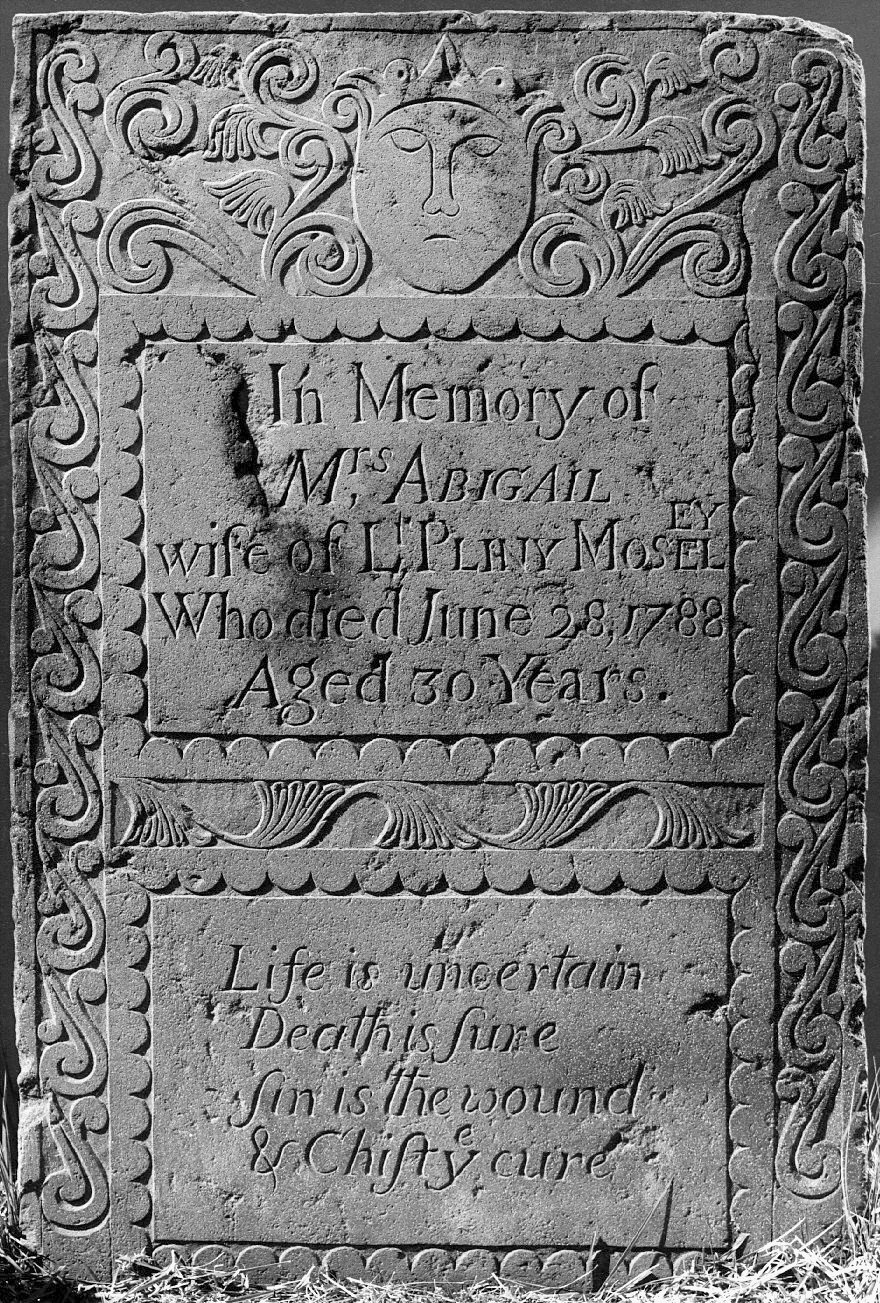 In Memory of
Mrs, ABIGAIL
wife of Lt PLINY MOSELEY
Who died June 28, 1788
Aged 30 Years.
Life is uncertain
Death is ſure
ſin is the wound
& Chiſt ye cure